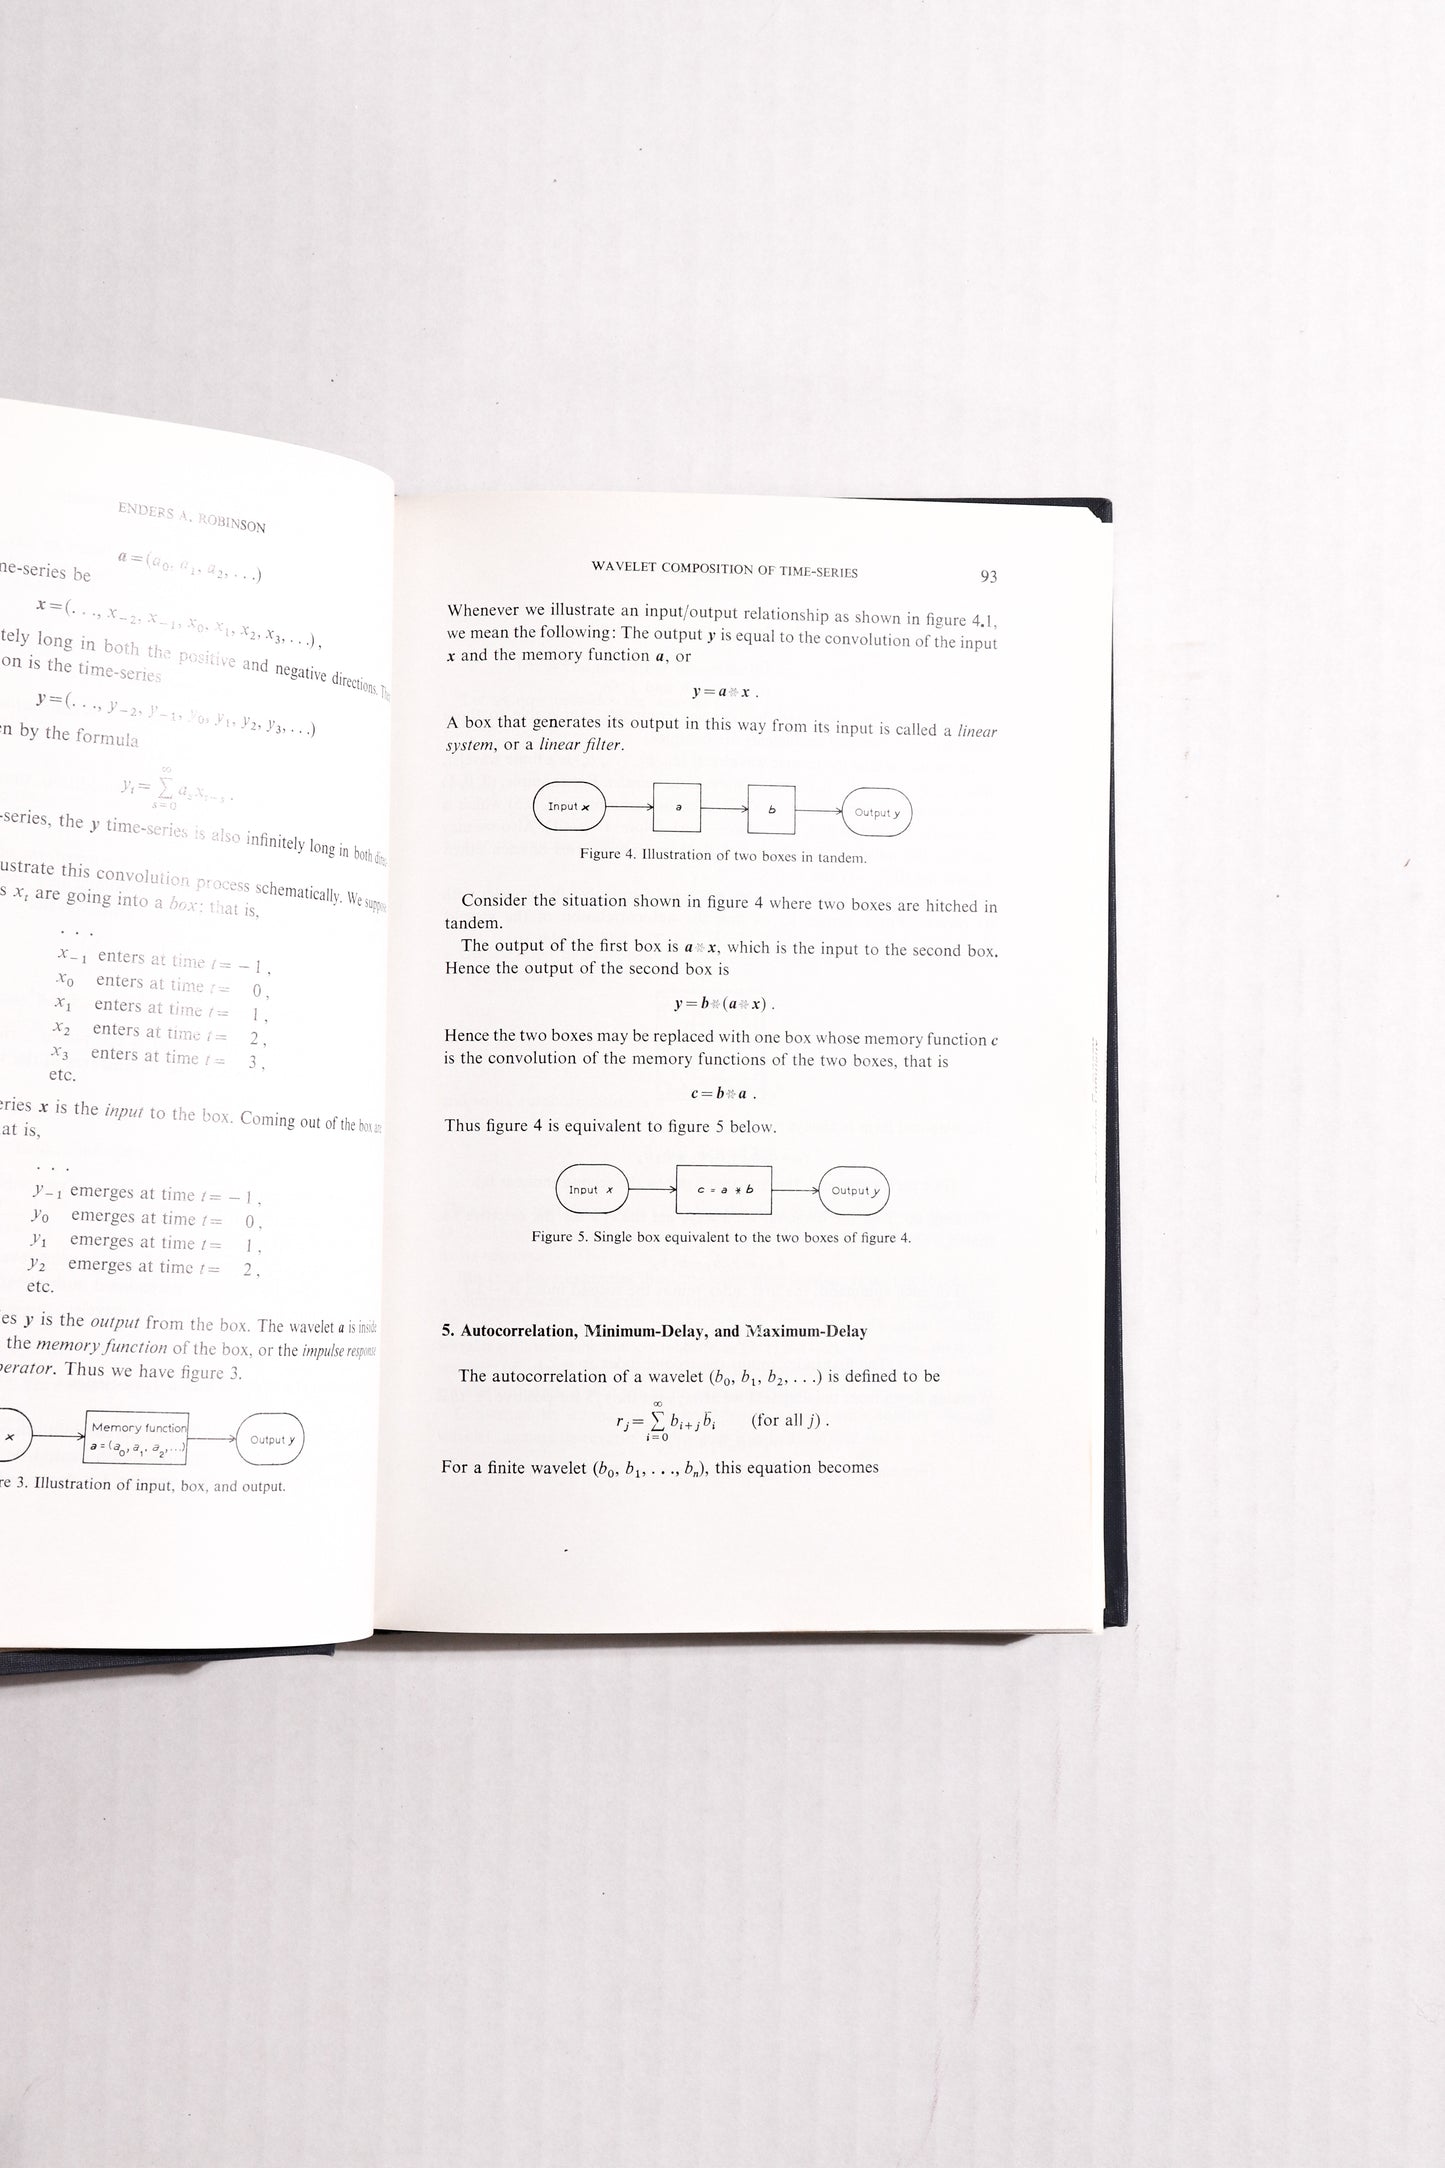 ENDERS A. ROBINSON
a=(a₀, a₁, a₂, . . .)
me-series be
x=(. . ., x₋₂, x₋₁, x₀, x₁, x₂, x₃, . . .),
tely long in both the positive and negative directions.
on is the time-series
y=(. . ., y₋₂, y₋₁, y₀, y₁, y₂, y₃, . . .)
n by the formula
∞
yₜ= ∑ aₛxₜ₋ₛ.
s=0
-series, the y time-series is also infinitely long in both
ustrate this convolution process schematically. We
s xₜ are going into a box; that is,
. . .
x₋₁ enters at time t= −1,
x₀ enters at time t= 0,
x₁ enters at time t= 1,
x₂ enters at time t= 2,
x₃ enters at time t= 3,
etc.
eries x is the input to the box. Coming out of the box
at is,
. . .
y₋₁ emerges at time t= −1,
y₀ emerges at time t= 0,
y₁ emerges at time t= 1,
y₂ emerges at time t= 2,
etc.
es y is the output from the box. The wavelet a is inside
the memory function of the box, or the impulse response
perator. Thus we have figure 3.
x
Memory function
a = (a₀, a₁, a₂, ...)
Output y
re 3. Illustration of input, box, and output.
WAVELET COMPOSITION OF TIME-SERIES 93
Whenever we illustrate an input/output relationship as shown in figure 4.1,
we mean the following: The output y is equal to the convolution of the input
x and the memory function a, or
y=a*x .
A box that generates its output in this way from its input is called a linear
system, or a linear filter.
Input x a b Output y
Figure 4. Illustration of two boxes in tandem.
Consider the situation shown in figure 4 where two boxes are hitched in
tandem.
The output of the first box is a*x, which is the input to the second box.
Hence the output of the second box is
y=b*(a*x) .
Hence the two boxes may be replaced with one box whose memory function c
is the convolution of the memory functions of the two boxes, that is
c=b*a .
Thus figure 4 is equivalent to figure 5 below.
Input x c = a * b Output y
Figure 5. Single box equivalent to the two boxes of figure 4.
5. Autocorrelation, Minimum-Delay, and Maximum-Delay
The autocorrelation of a wavelet (b₀, b₁, b₂, . . .) is defined to be
∞
rⱼ= ∑ bᵢ₊ⱼb̄ᵢ (for all j) .
i=0
For a finite wavelet (b₀, b₁, . . ., bₙ), this equation becomes